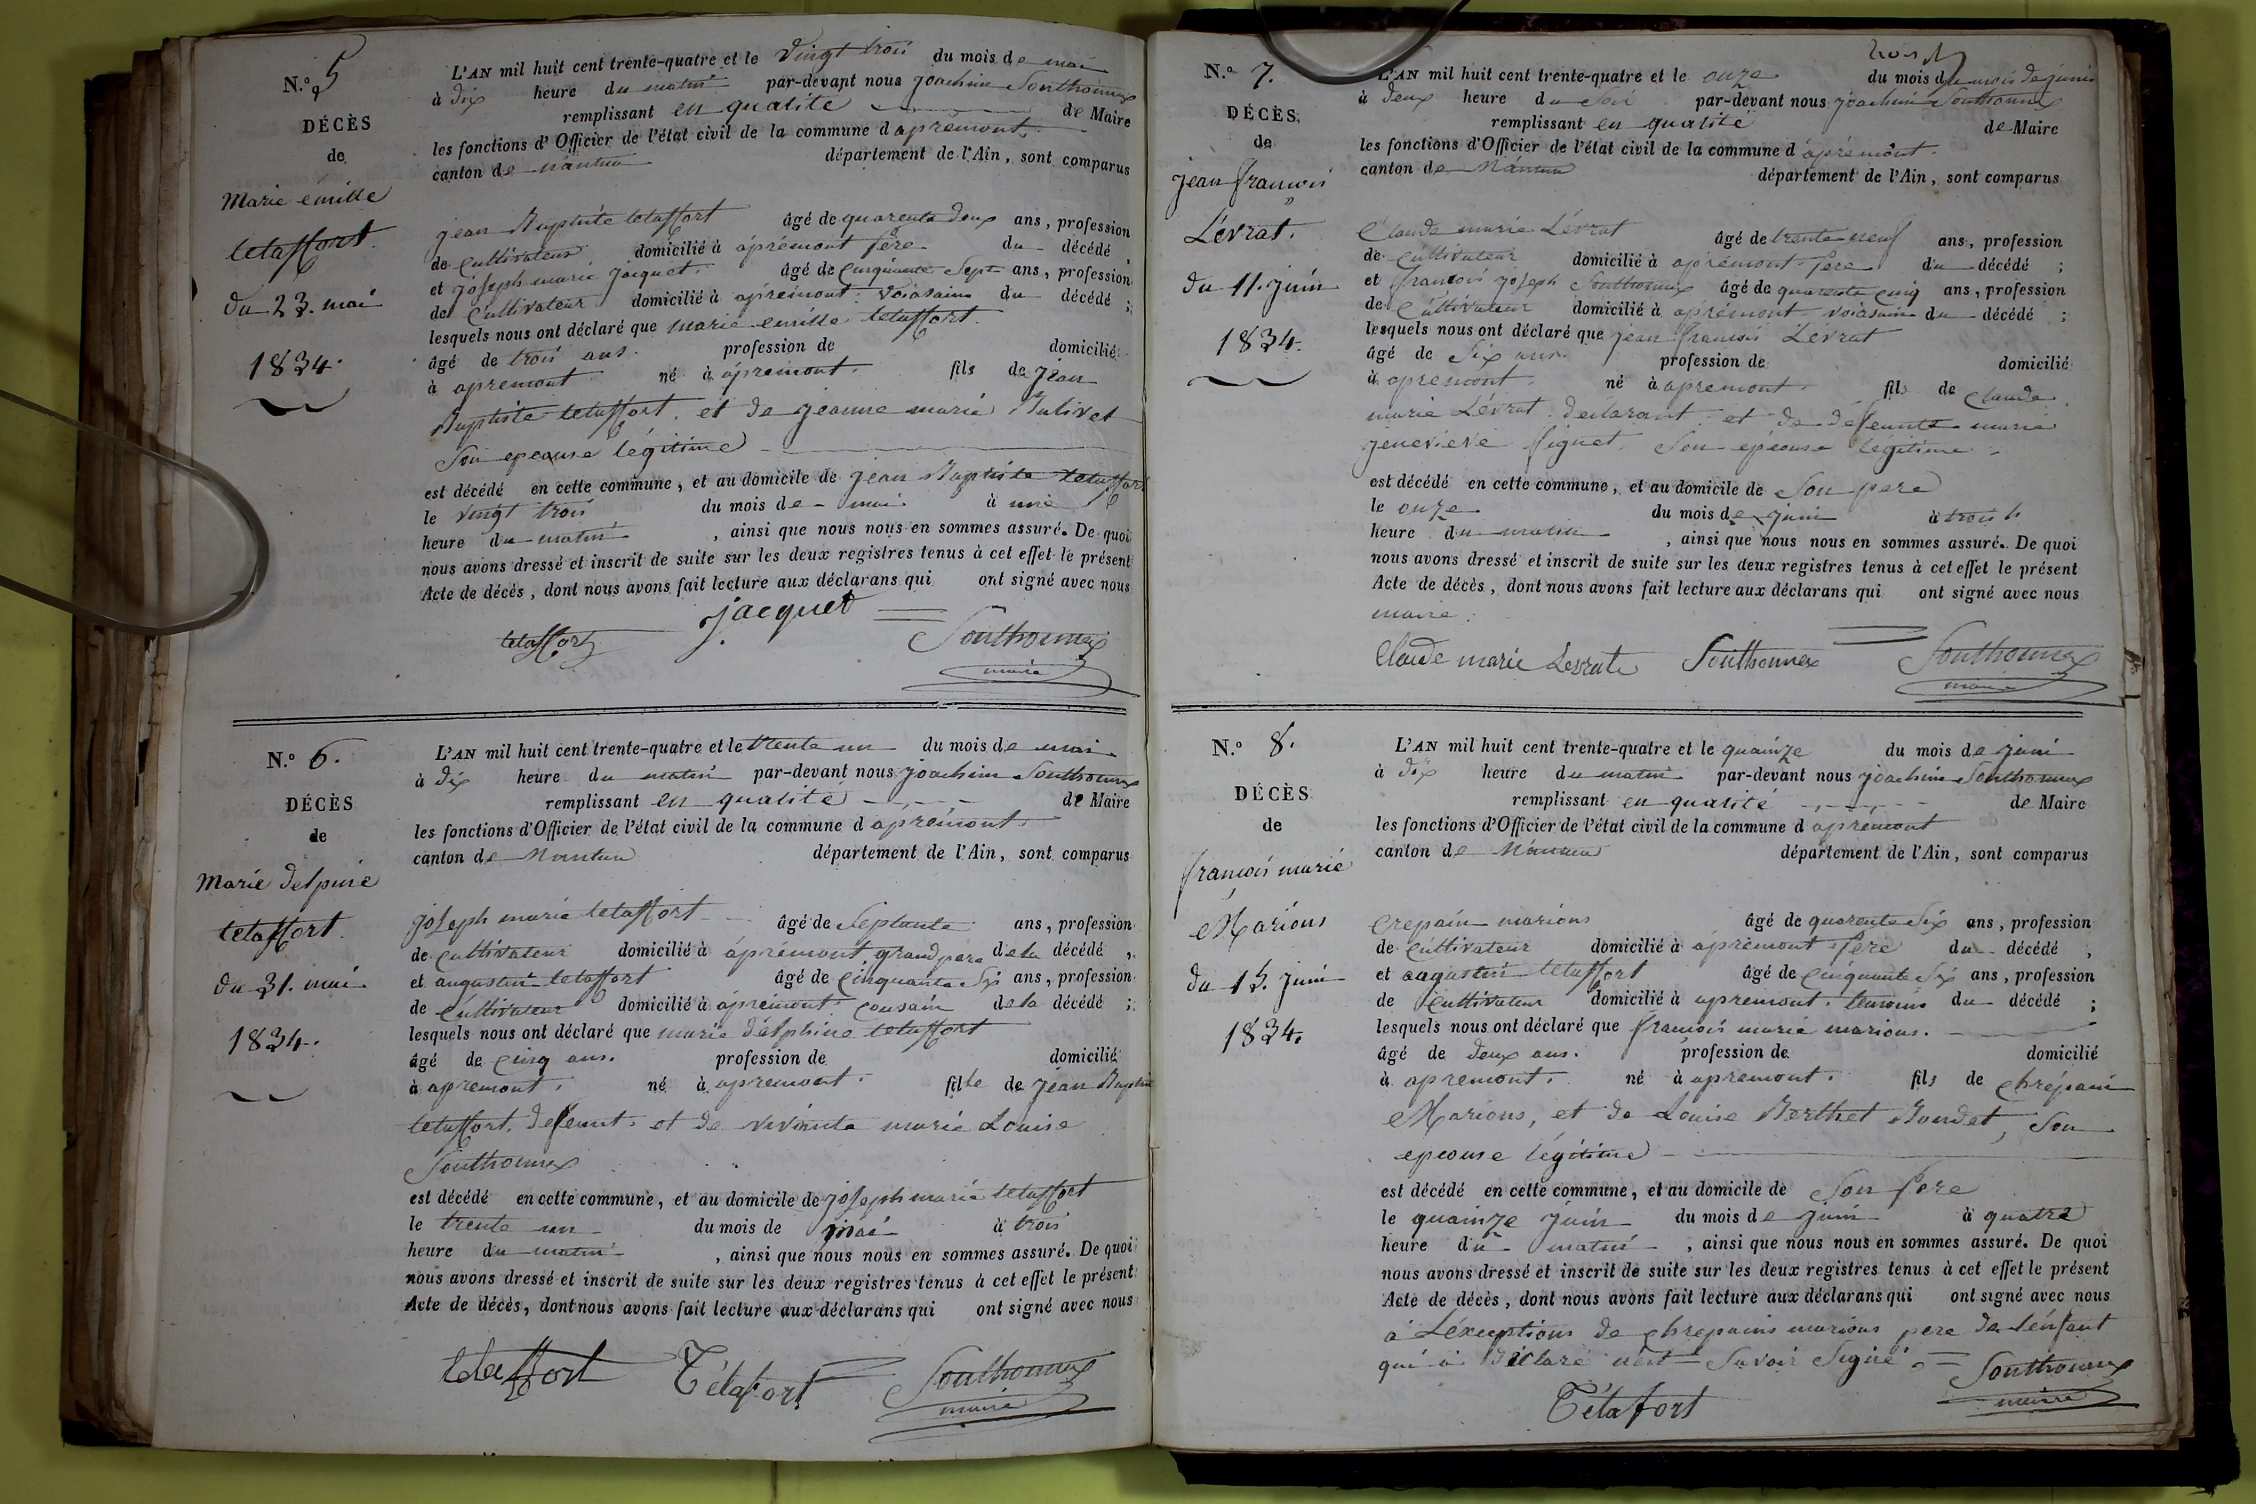 N.º 5
DÉCÈS
de
Marie émille
tetaffort.
du 23. mai
1834.
L'AN mil huit cent trente-quatre et le vingt trois du mois de mai
à dix heure du matin par-devant nous joachim Sonthonnax
remplissant en qualité de Maire
les fonctions d'Officier de l'état civil de la commune d apremont
canton de nantua département de l'Ain, sont comparus
jean Baptiste tetaffort âgé de quarente deux ans, profession
de cultivateur domicilié à aprémont père du décédé ,
et joseph marie jacquet âgé de cinquante Sept ans, profession
de Cultivateur domicilié à apremont. voiasains du décédé ;
lesquels nous ont déclaré que marie emille tetaffort.
âgé de trois ans. profession de domicilié
à apremont né à apremont. fils de jean
Baptiste tetaffort. et de jeanne marie Balivet
Son epeouse légitime
est décédé en cette commune, et au domicile de jean Baptiste tetaffort
le vingt trois du mois de mai à une
heure du matin , ainsi que nous nous en sommes assuré. De quoi
nous avons dressé et inscrit de suite sur les deux registres tenus à cet effet le présent
Acte de décès, dont nous avons fait lecture aux déclarans qui ont signé avec nous
jacquet
tetaffort Sonthonnax
maire
N.º 6.
DÉCÈS
de
Marie delpine
tetaffort.
du 31. mai
1834.
L'AN mil huit cent trente-quatre et le trente un du mois de mai
à dix heure du matin par-devant nous joachim Sonthonnax
remplissant en qualité de Maire
les fonctions d'Officier de l'état civil de la commune d apremont
canton de Nantua département de l'Ain, sont comparus
joseph marie tetaffort âgé de Septante ans, profession
de cultivateur domicilié à aprémont grand pere de la décédé ,
et augustin tetaffort âgé de cinquante Six ans, profession
de Cultivateur domicilié à apremont cousain de la décédé ;
lesquels nous ont déclaré que marie délphine tetaffort
âgé de cinq ans. profession de domicilié
à apremont. né à apremont. fille de jean Baptiste
tetaffort. defeunt. et de vivante marie Louise
Sonthonnax
est décédé en cette commune, et au domicile de joseph marie tetaffort
le trente un du mois de mai à trois
heure du matin , ainsi que nous nous en sommes assuré. De quoi
nous avons dressé et inscrit de suite sur les deux registres tenus à cet effet le présent
Acte de décès, dont nous avons fait lecture aux déclarans qui ont signé avec nous
tetaffort Tétafort Sonthonnax
maire
N.º 7.
DÉCÈS
de
jean francois
Lévrat.
du 11. juin
1834.
L'AN mil huit cent trente-quatre et le onze du mois du mois de juin
à deux heure du soir par-devant nous joachim Sonthonnax
remplissant en qualité de Maire
les fonctions d'Officier de l'état civil de la commune d apremont.
canton de Nantua département de l'Ain, sont comparus
Claude marie Lévrat âgé de trente neuf ans, profession
de cultivateur domicilié à apremont père du décédé ;
et francois joseph Sonthonnax âgé de quarente cinq ans, profession
de Cultivateur domicilié à apremont voiasain du décédé ;
lesquels nous ont déclaré que jean francois Lévrat
âgé de Six ans. profession de domicilié
à apremont. né à apremont. fils de Claude
marie Lévrat. déclarant. et de défeunte marie
genevieve figuet. Son epéouse légitime.
est décédé en cette commune, et au domicile de Son pere
le onze du mois de juin à trois h
heure du matin , ainsi que nous nous en sommes assuré. De quoi
nous avons dressé et inscrit de suite sur les deux registres tenus à cet effet le présent
Acte de décès, dont nous avons fait lecture aux déclarans qui ont signé avec nous
maire.
Claude marie Levrat Sonthonnax Sonthonnax
maire
N.º 8.
DÉCÈS
de
françois marie
Marions
du 15. juin
1834.
L'AN mil huit cent trente-quatre et le quainze du mois de juin
à dix heure du matin par-devant nous joachim Sonthonnax
remplissant en qualité de Maire
les fonctions d'Officier de l'état civil de la commune d apremont
canton de Nantua département de l'Ain, sont comparus
Crepain marions âgé de quarente Six ans, profession
de cultivateur domicilié à apremont père du décédé ,
et augustin tetaffort âgé de cinquante Six ans, profession
de Cultivateur domicilié à apremont. temoins du décédé ;
lesquels nous ont déclaré que francois marie marions.
âgé de deux ans. profession de domicilié
à apremont. né à apremont. fils de Chrépain
Marions, et de Louise Berthet Bondet, Son
epeouse légitime
est décédé en cette commune, et au domicile de Son pere
le quainze juin du mois de juin à quatre
heure du matin , ainsi que nous nous en sommes assuré. De quoi
nous avons dressé et inscrit de suite sur les deux registres tenus à cet effet le présent
Acte de décès, dont nous avons fait lecture aux déclarans qui ont signé avec nous
à Léxceptions de chrepains marions pere de lénfant
qui à déclaré nént Savoir Signé. Sonthonnax
Tétafort maire